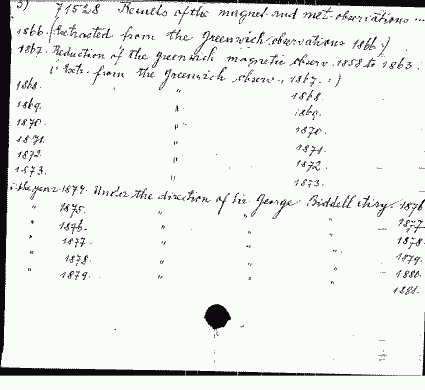 3) 71528 Results of the magnet. and met. observations ...
1866. (Extracted from the Greenwich observations 1866.)
1867. Reduction of the Greenwich magnetic observ. 1858 to 1863.
(Extr. from the Greenwich observ., 1867.)
1868. " 1868.
1869. " 1869.
1870. " 1870.
1871. " 1871.
1872. " 1872
1873. " 1873.
the year 1874. Under the direction of Sir George Biddell Airy. 1876
" 1875. " " " 1877
" 1876. " " " 1878
" 1877 " " " 1879.
" 1878. " " " 1880.
" 1879. " " " 1881.